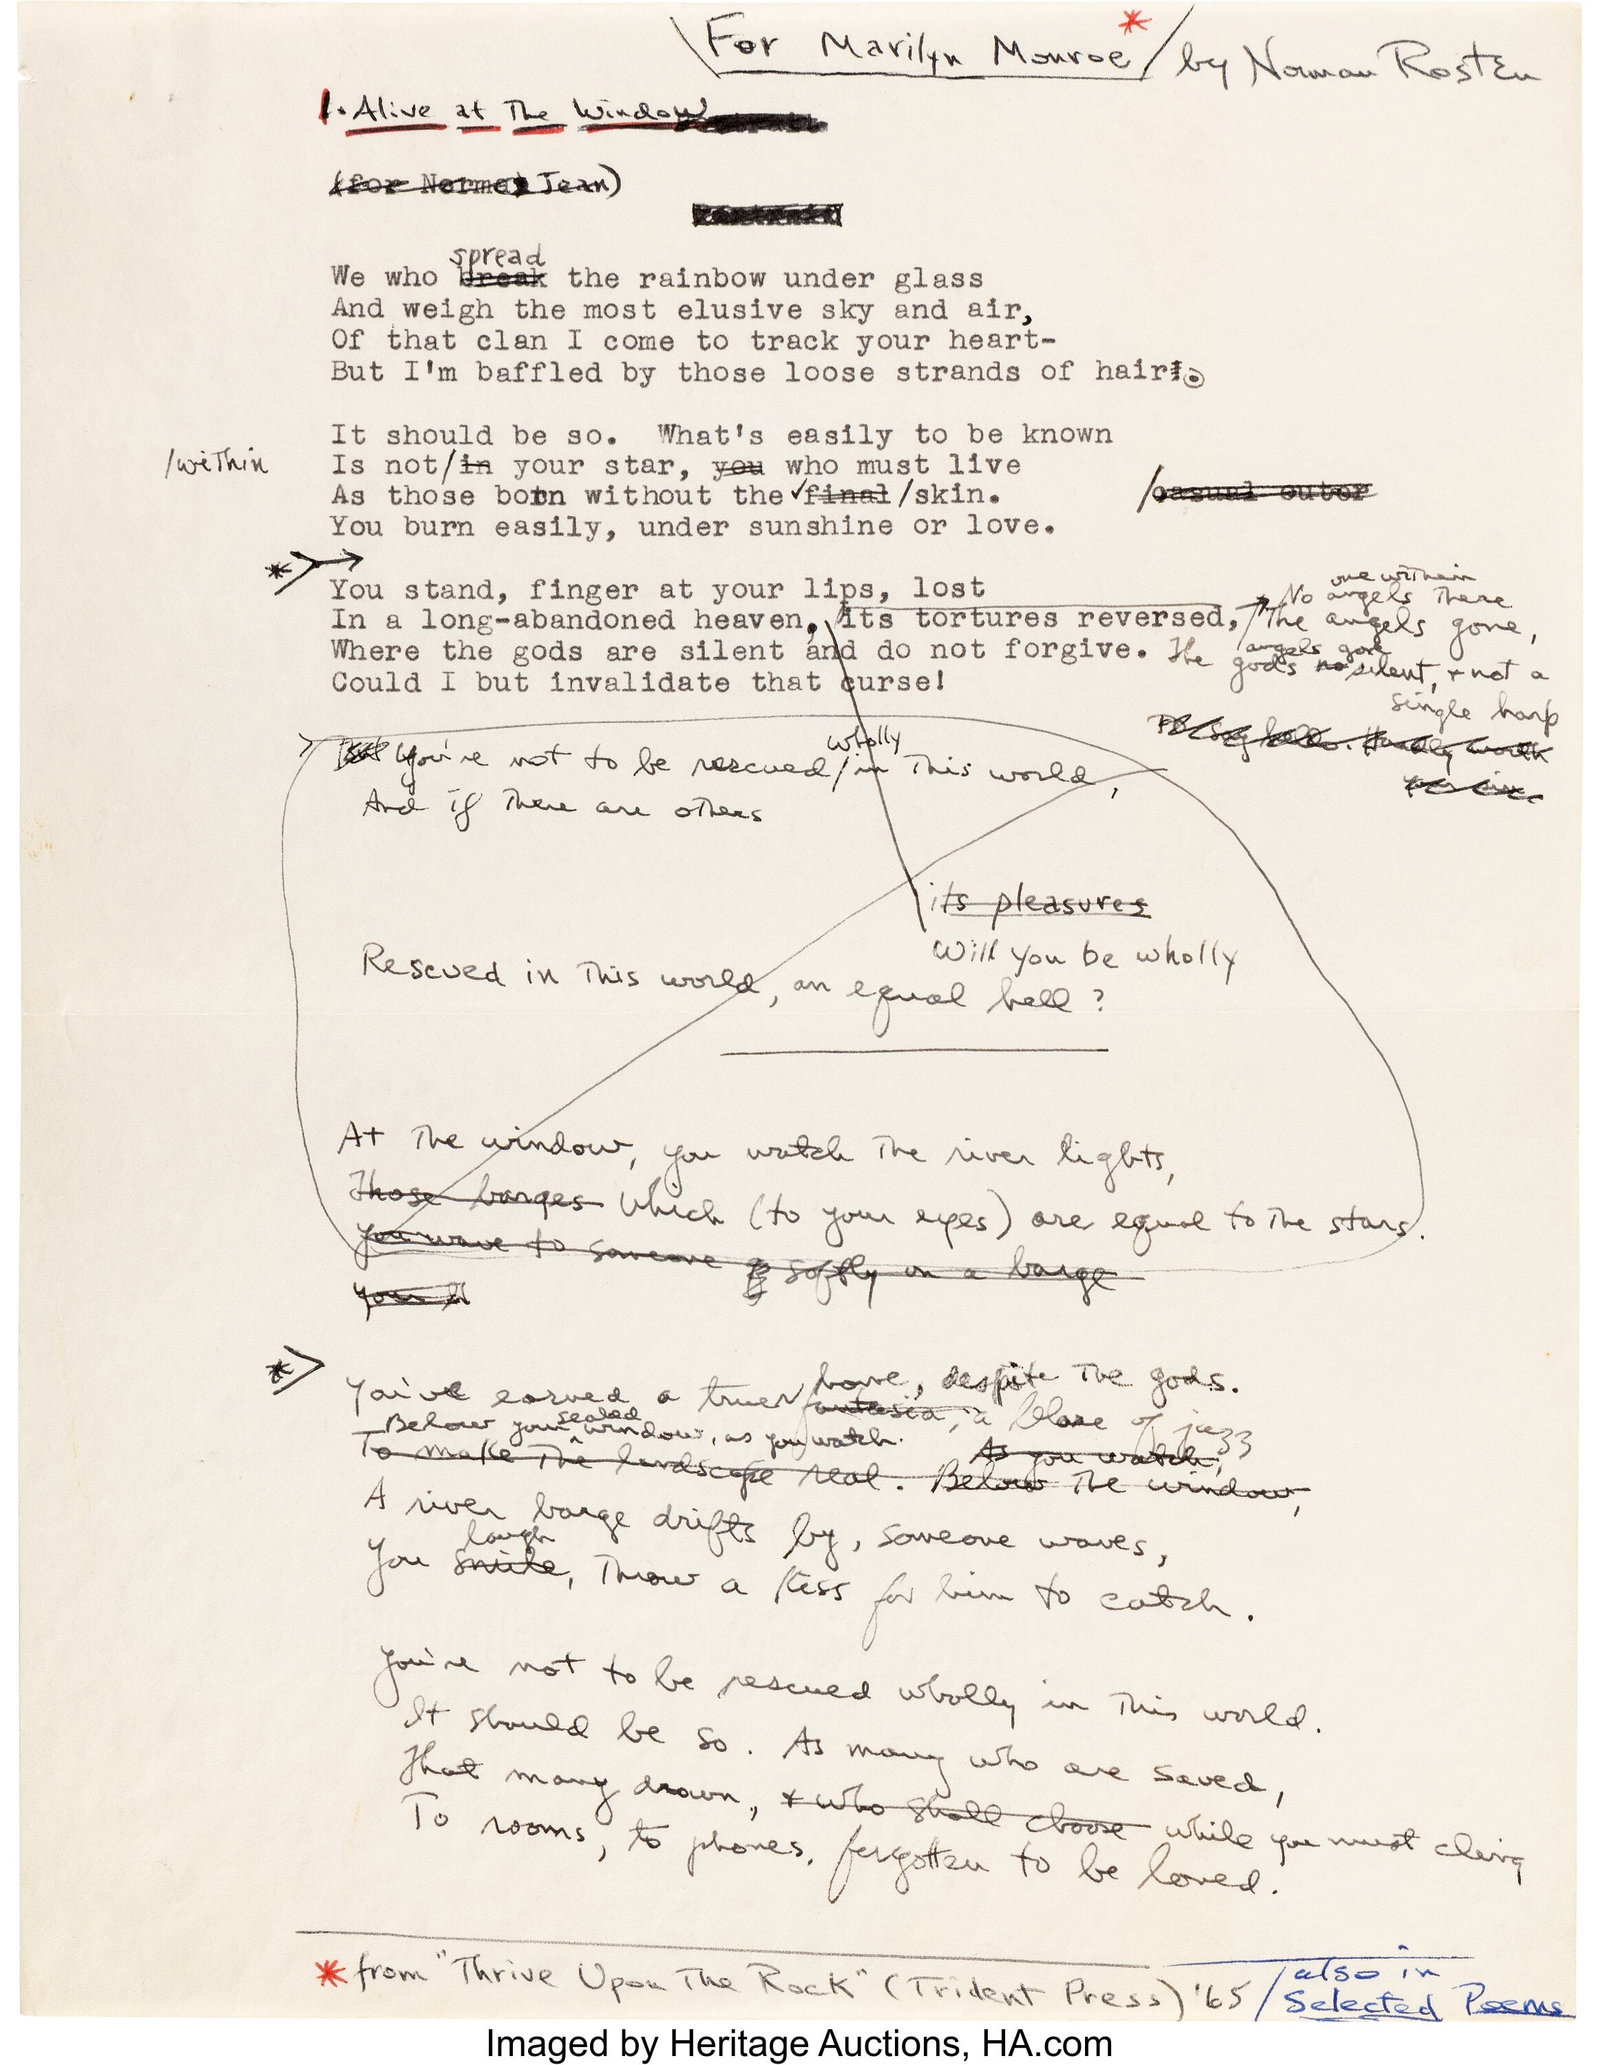 For Marilyn Monroe* / by Norman Rosten
1. Alive at The Window
(for Norma Jean)
spread
We who break the rainbow under glass
And weigh the most elusive sky and air,
Of that clan I come to track your heart-
But I'm baffled by those loose strands of hair.
It should be so.  What's easily to be known
/within
Is not/in your star, you who must live
As those born without the final/skin.
/casual outer
You burn easily, under sunshine or love.
*
You stand, finger at your lips, lost
In a long-abandoned heaven, its tortures reversed,
Where the gods are silent and do not forgive.
Could I but invalidate that curse!
one within
No angels There
/The angels gone,
angels gone
The gods silent, + not a
single harp
wholly
But You're not to be rescued/in This world,
And if There are others
its pleasures
Will you be wholly
Rescued in This world, an equal hell?
At The window, you watch The river lights,
Those barges Which (to your eyes) are equal to The stars.
You wave to someone softly on a barge
your
*
home, despite The gods.
You've earned a truer/fantasia, a blare of jazz
Below your sealed window, as you watch.
As you watch,
To make The landscape real. Below The window,
A river barge drifts by, someone waves,
laugh
You smile, Throw a kiss for him to catch.
You're not to be rescued wholly in This world.
It should be so. As many who are saved,
That many drown, + who shall choose while you must cling
To rooms, to phones, forgotten to be loved.
* from "Thrive Upon The Rock" (Trident Press) '65 / also in
Selected Poems
Imaged by Heritage Auctions, HA.com